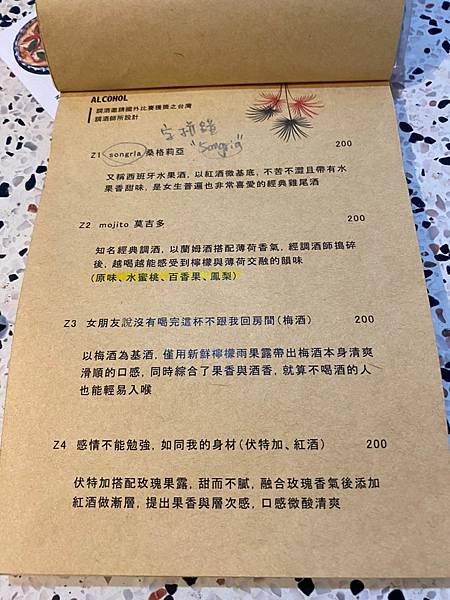 ALCOHOL
調酒邀請國外比賽獲獎之台灣
調酒師所設計
字拼錯
"Songria"
Z1 songrla 桑格莉亞 200
又稱西班牙水果酒, 以紅酒微基底, 不苦不澀且帶有水
果香甜味, 是女生普遍也非常喜愛的經典雞尾酒
Z2 mojito 莫吉多 200
知名經典調酒, 以蘭姆酒搭配薄荷香氣, 經調酒師搗碎
後, 越喝越能感受到檸檬與薄荷交融的韻味
(原味、水蜜桃、百香果、鳳梨)
Z3 女朋友說沒有喝完這杯不跟我回房間(梅酒) 200
以梅酒為基酒, 僅用新鮮檸檬雨果露帶出梅酒本身清爽
滑順的口感, 同時綜合了果香與酒香, 就算不喝酒的人
也能輕易入喉
Z4 感情不能勉強, 如同我的身材(伏特加、紅酒) 200
伏特加搭配玫瑰果露, 甜而不膩, 融合玫瑰香氣後添加
紅酒做漸層, 提出果香與層次感, 口感微酸清爽